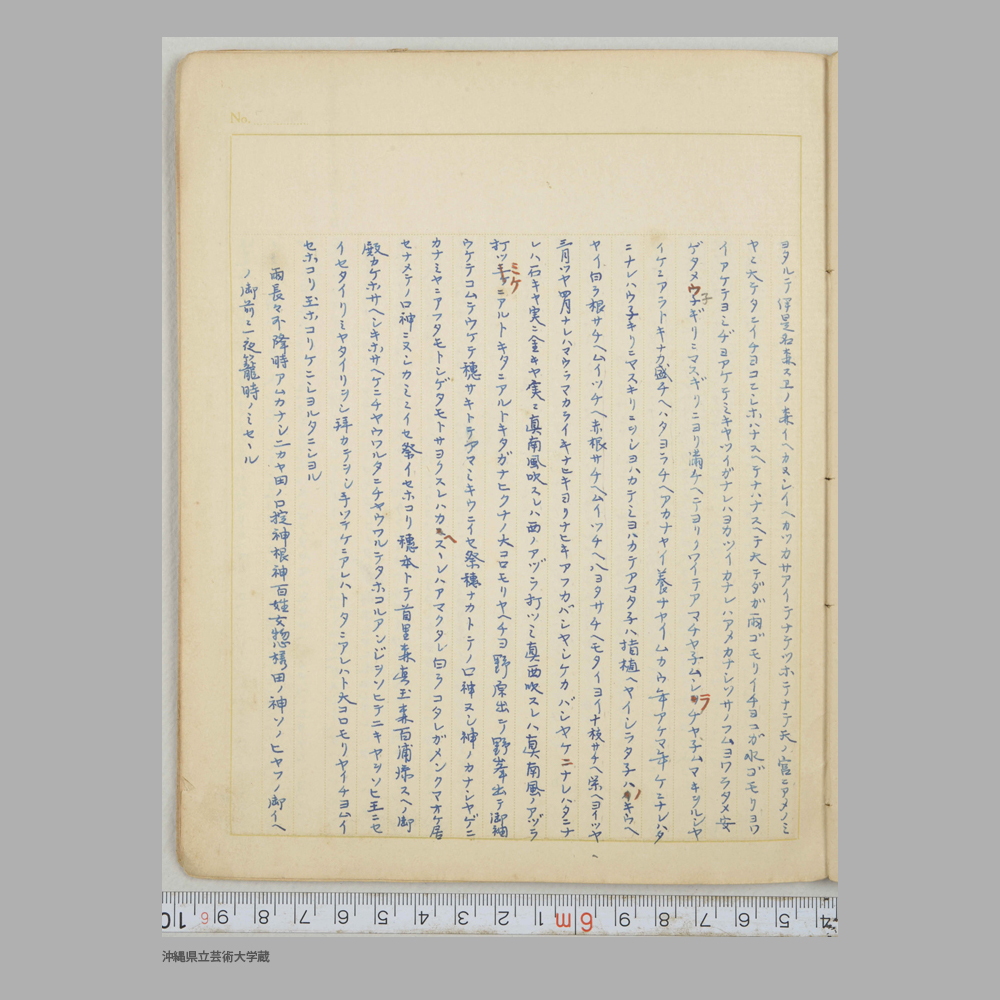 No.
ヨタルテ伊是名森スヱノ森イヘカヌシイヘカツカサアイテナケツホテナテ天ノ宮ニアメノミ
ヤミ大テタニイチヨコニシホハナスヘテナハナスヘテ大テダガ雨ゴモリイチヨコガ水ゴモリヨワ
イアケテヨミヂヨアケテミキヤツイガナレハヨカツイカナレハアメカナシソサノフムヨワラタメ安
ゲタメウ子ギリニマスギリニヨリ満ケヘテヨリソワイテアマチヤ子ムシラチヤ子ムマキツルシヤ
イケニアラトキナカ盛チヘハタヨラチヘアカナヤイ養ナヤイムカウ年アケマ年ケニナレハタ
ニナレハウ子キリニマスキリニツシヨハカテミヨハカテアコタ子ハ指植ヘヤイシラタ子ハハキウヘ
ヤイ白ラ根サチヘムイツチヘ赤根サチヘムイツチヘハヨタサチヘモタイヨイナ枝サチヘ栄ヘヨイツヤ
三月ツヤ四月ナレハマウラマカライキナヒキヨリナヒキアフカバシヤシケカバシヤケニナレハタニナ
レハ石キヤ実ニ金キヤ実ニ真南風吹スレハ西ノアヅラ打ツミ真西吹スレハ真南風ノアヅラ
打ツミケニアルトキタニアルトキタガナヒクナノ大コロモリヤヘチヨ野原出ニテ野峯出テ御袖
ウケテコムテウケテ穂サキトテアマミキウニイセ祭穂ナカトテノロ神ヌシ神ノカナシヤゲニ
カナミヤニアフタモトシゲタモトサヨクスレハカヘスーレハアマクタレ白ラコタレガメンクマオケ居
セナメテノロ神ニヌシカミミイセ祭イセホコリ穂本トテ首里森真玉森百浦添スヘノ御
殿カケホサヘシキホサヘケニチヤウワルタニチヤウワルテタホコルアンジヲソヒテニキヤヲソヒ王ニセ
イセタイリミヤタイリヲシ拝カテヲシ手ツテケニアレハトタニアレハト大コロモリヤイチヨムイ
セホコリ玉ホコリケニシヨルタニシヨル
雨長々不降時アムカナシ二カヤ田ノロ掟神根神百姓女惣様田ノ神ソノヒヤフノ御イヘ
ノ御前ニ一夜籠時ノミセール
10 9 8 7 6 5 4 3 2 1 6m 9 8 7 6 5 4
沖縄県立芸術大学蔵